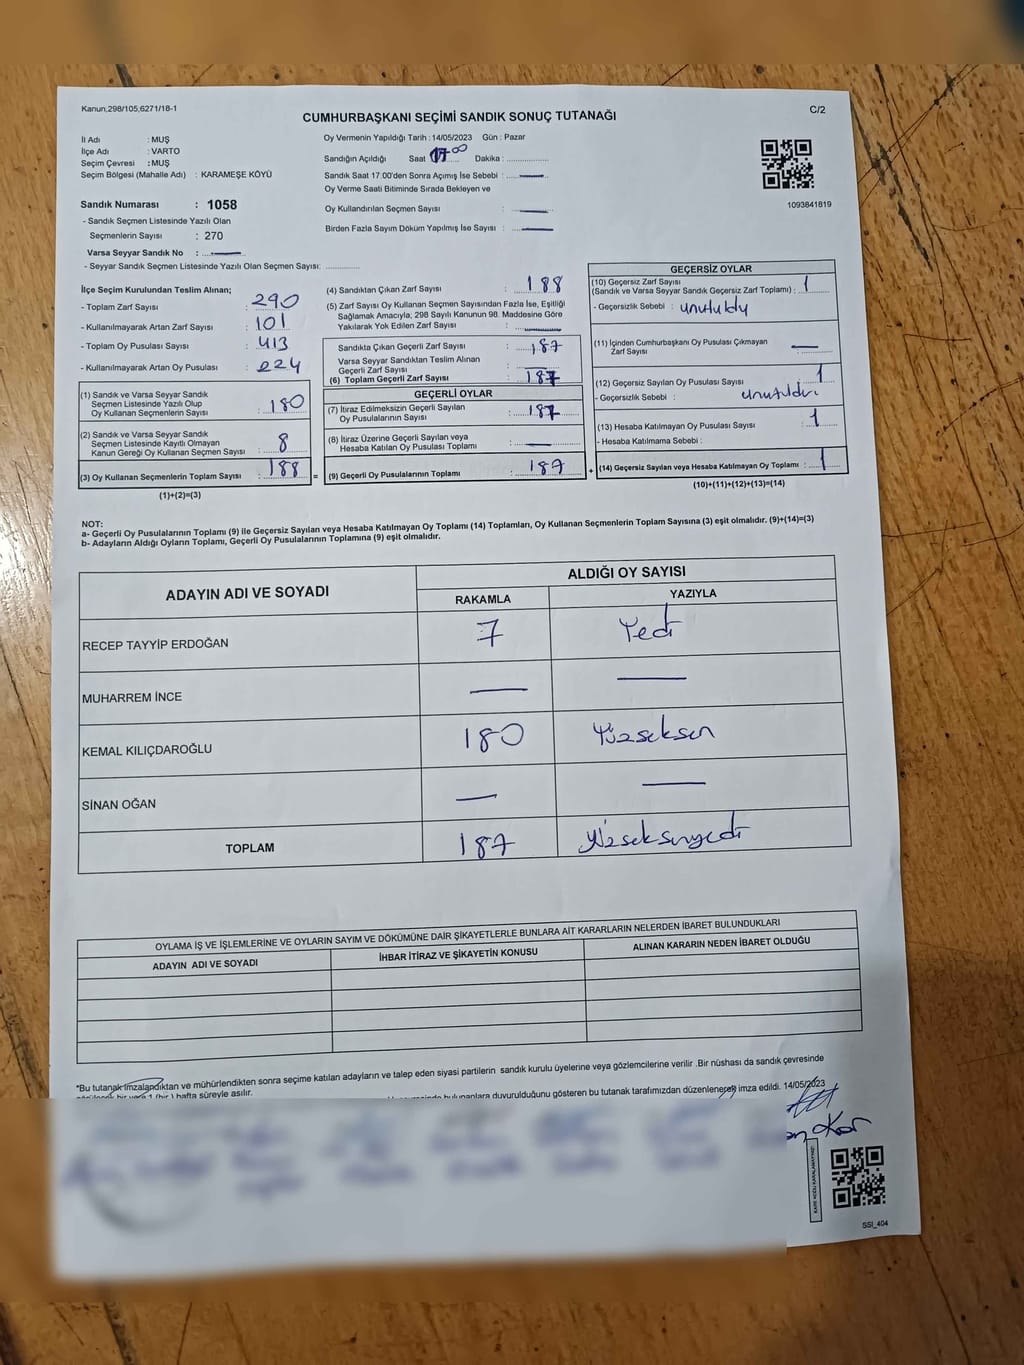 Kanun,298/105;6271/18-1
C/2
CUMHURBAŞKANI SEÇİMİ SANDIK SONUÇ TUTANAĞI
İl Adı : MUŞ
İlçe Adı : VARTO
Seçim Çevresi : MUŞ
Seçim Bölgesi (Mahalle Adı) : KARAMEŞE KÖYÜ
Sandık Numarası : 1058
- Sandık Seçmen Listesinde Yazılı Olan
Seçmenlerin Sayısı : 270
Varsa Seyyar Sandık No :
- Seyyar Sandık Seçmen Listesinde Yazılı Olan Seçmen Sayısı:
Oy Vermenin Yapıldığı Tarih : 14/05/2023 Gün : Pazar
Sandığın Açıldığı Saat 17.00 Dakika :
Sandık Saat 17.00'den Sonra Açımış İse Sebebi :
Oy Verme Saati Bitiminde Sırada Bekleyen ve
Oy Kullandırılan Seçmen Sayısı :
Birden Fazla Sayım Döküm Yapılmış İse Sayısı :
1093841819
İlçe Seçim Kurulundan Teslim Alınan;
- Toplam Zarf Sayısı : 290
- Kullanılmayarak Artan Zarf Sayısı : 101
- Toplam Oy Pusulası Sayısı : 413
- Kullanılmayarak Artan Oy Pusulası : 224
(1) Sandık ve Varsa Seyyar Sandık
Seçmen Listesinde Yazılı Olup
Oy Kullanan Seçmenlerin Sayısı : 180
(2) Sandık ve Varsa Seyyar Sandık
Seçmen Listesinde Kayıtlı Olmayan
Kanun Gereği Oy Kullanan Seçmen Sayısı : 8
(3) Oy Kullanan Seçmenlerin Toplam Sayısı : 188 =
(1)+(2)=(3)
(4) Sandıktan Çıkan Zarf Sayısı : 188
(5) Zarf Sayısı Oy Kullanan Seçmen Sayısından Fazla İse, Eşitliği
Sağlamak Amacıyla, 298 Sayılı Kanunun 98. Maddesine Göre
Yakılarak Yok Edilen Zarf Sayısı :
Sandıkta Çıkan Geçerli Zarf Sayısı : 187
Varsa Seyyar Sandıktan Teslim Alınan
Geçerli Zarf Sayısı :
(6) Toplam Geçerli Zarf Sayısı : 187
GEÇERLİ OYLAR
(7) İtiraz Edilmeksizin Geçerli Sayılan
Oy Pusulalarının Sayısı : 187
(8) İtiraz Üzerine Geçerli Sayılan veya
Hesaba Katılan Oy Pusulası Toplamı :
(9) Geçerli Oy Pusulalarının Toplamı : 187 +
GEÇERSİZ OYLAR
(10) Geçersiz Zarf Sayısı
(Sandık ve Varsa Seyyar Sandık Geçersiz Zarf Toplamı) : 1
- Geçersizlik Sebebi : unutuldu
(11) İçinden Cumhurbaşkanı Oy Pusulası Çıkmayan
Zarf Sayısı :
(12) Geçersiz Sayılan Oy Pusulası Sayısı : 1
- Geçersizlik Sebebi :
(13) Hesaba Katılmayan Oy Pusulası Sayısı : 1
- Hesaba Katılmama Sebebi :
(14) Geçersiz Sayılan veya Hesaba Katılmayan Oy Toplamı : 1
(10)+(11)+(12)+(13)=(14)
NOT:
a- Geçerli Oy Pusulalarının Toplamı (9) ile Geçersiz Sayılan veya Hesaba Katılmayan Oy Toplamı (14) Toplamları, Oy Kullanan Seçmenlerin Toplam Sayısına (3) eşit olmalıdır. (9)+(14)=(3)
b- Adayların Aldığı Oyların Toplamı, Geçerli Oy Pusulalarının Toplamına (9) eşit olmalıdır.
ADAYIN ADI VE SOYADI
ALDIĞI OY SAYISI
RAKAMLA YAZIYLA
RECEP TAYYİP ERDOĞAN 7 Yedi
MUHARREM İNCE
KEMAL KILIÇDAROĞLU 180 Yüzseksen
SİNAN OĞAN
TOPLAM 187 Yüzseksenyedi
OYLAMA İŞ VE İŞLEMLERİNE VE OYLARIN SAYIM VE DÖKÜMÜNE DAİR ŞİKAYETLERLE BUNLARA AİT KARARLARIN NELERDEN İBARET BULUNDUKLARI
ADAYIN ADI VE SOYADI
İHBAR İTİRAZ VE ŞİKAYETİN KONUSU
ALINAN KARARIN NEDEN İBARET OLDUĞU
*Bu tutanak imzalandıktan ve mühürlendikten sonra seçime katılan adayların ve talep eden siyasi partilerin sandık kurulu üyelerine veya gözlemcilerine verilir .Bir nüshası da sandık çevresinde
bir yere 1 (bir ) hafta süreyle asılır.
bulunanlara duyurulduğunu gösteren bu tutanak tarafımızdan düzenlenerek imza edildi. 14/05/2023
SSI_404